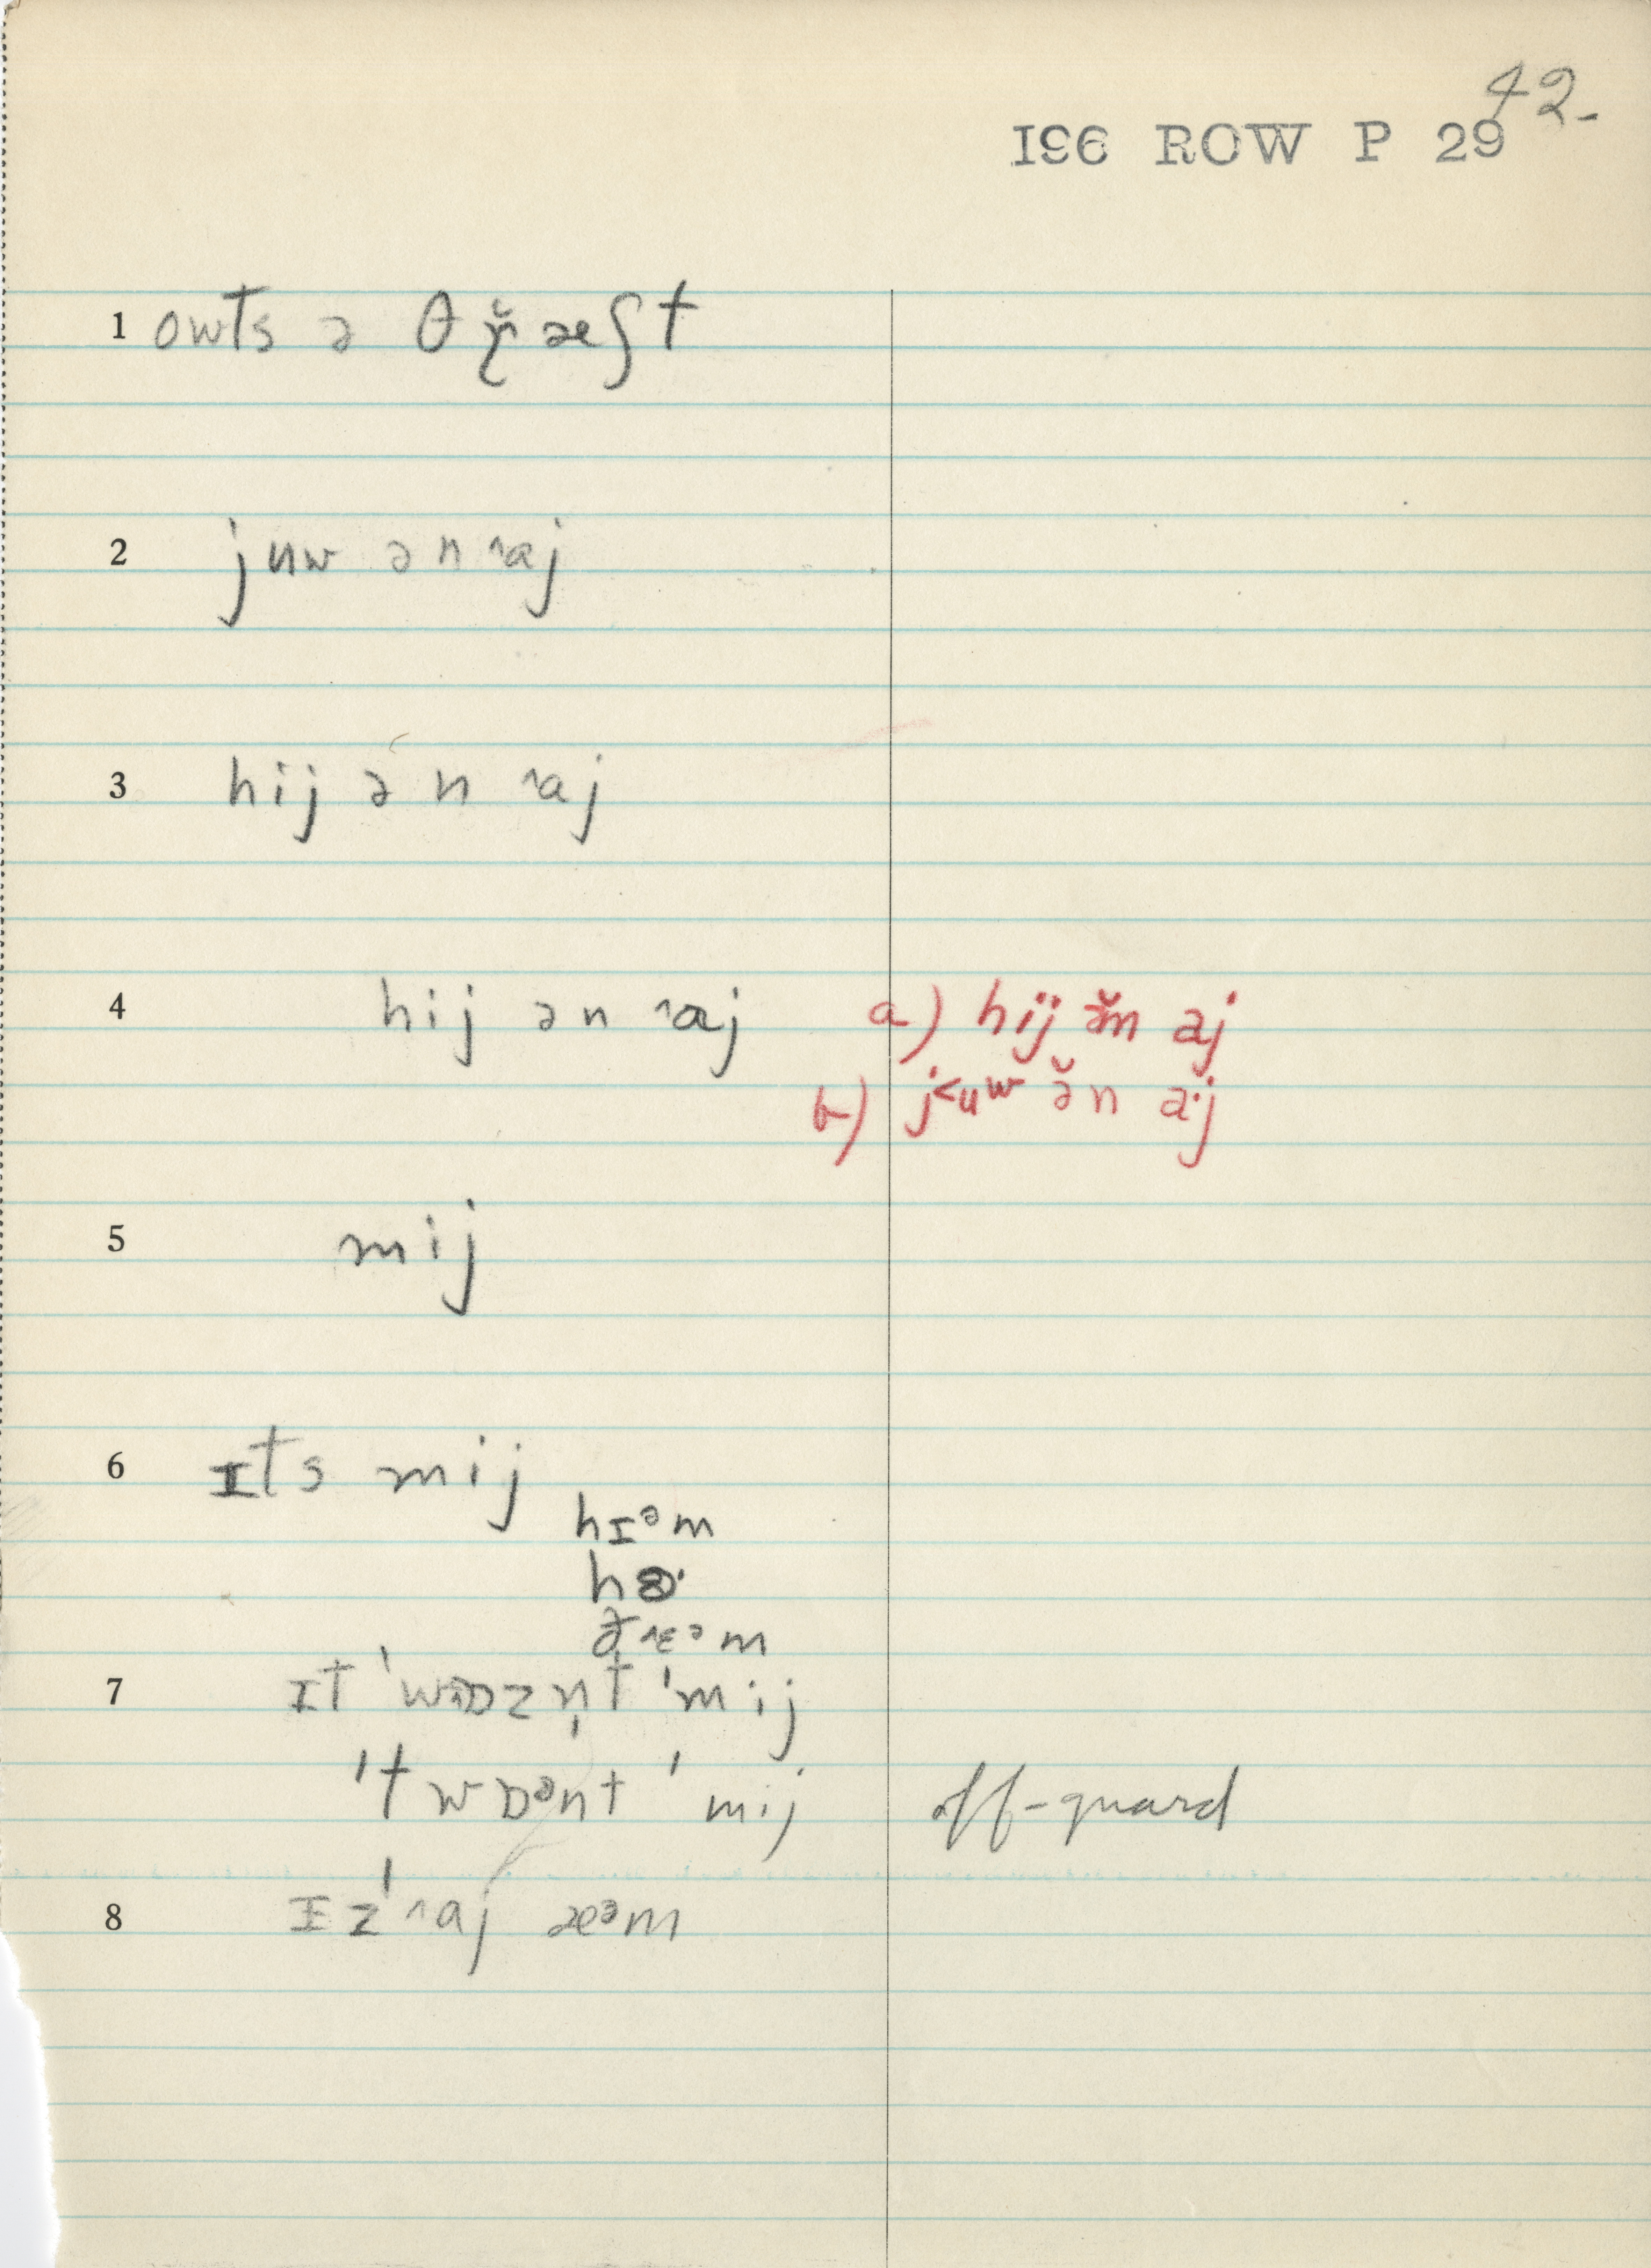 42-
196 ROW P 29
1 owts ə θɤ̆æʃt
2 juw ən ˄aj
3 hij ən ˄aj
4 hij ən ˄aj a) hij ə̆n aj
b) j˂uʷ ə̆n a·j
5 mij
6 ɪts mij
hɪᵊm
ðɛᵊm
7 ɪt 'wɒzn̩t 'mij
't wɒᵊnt 'mij off-guard
8 ɪz' ˄aj æᵊm